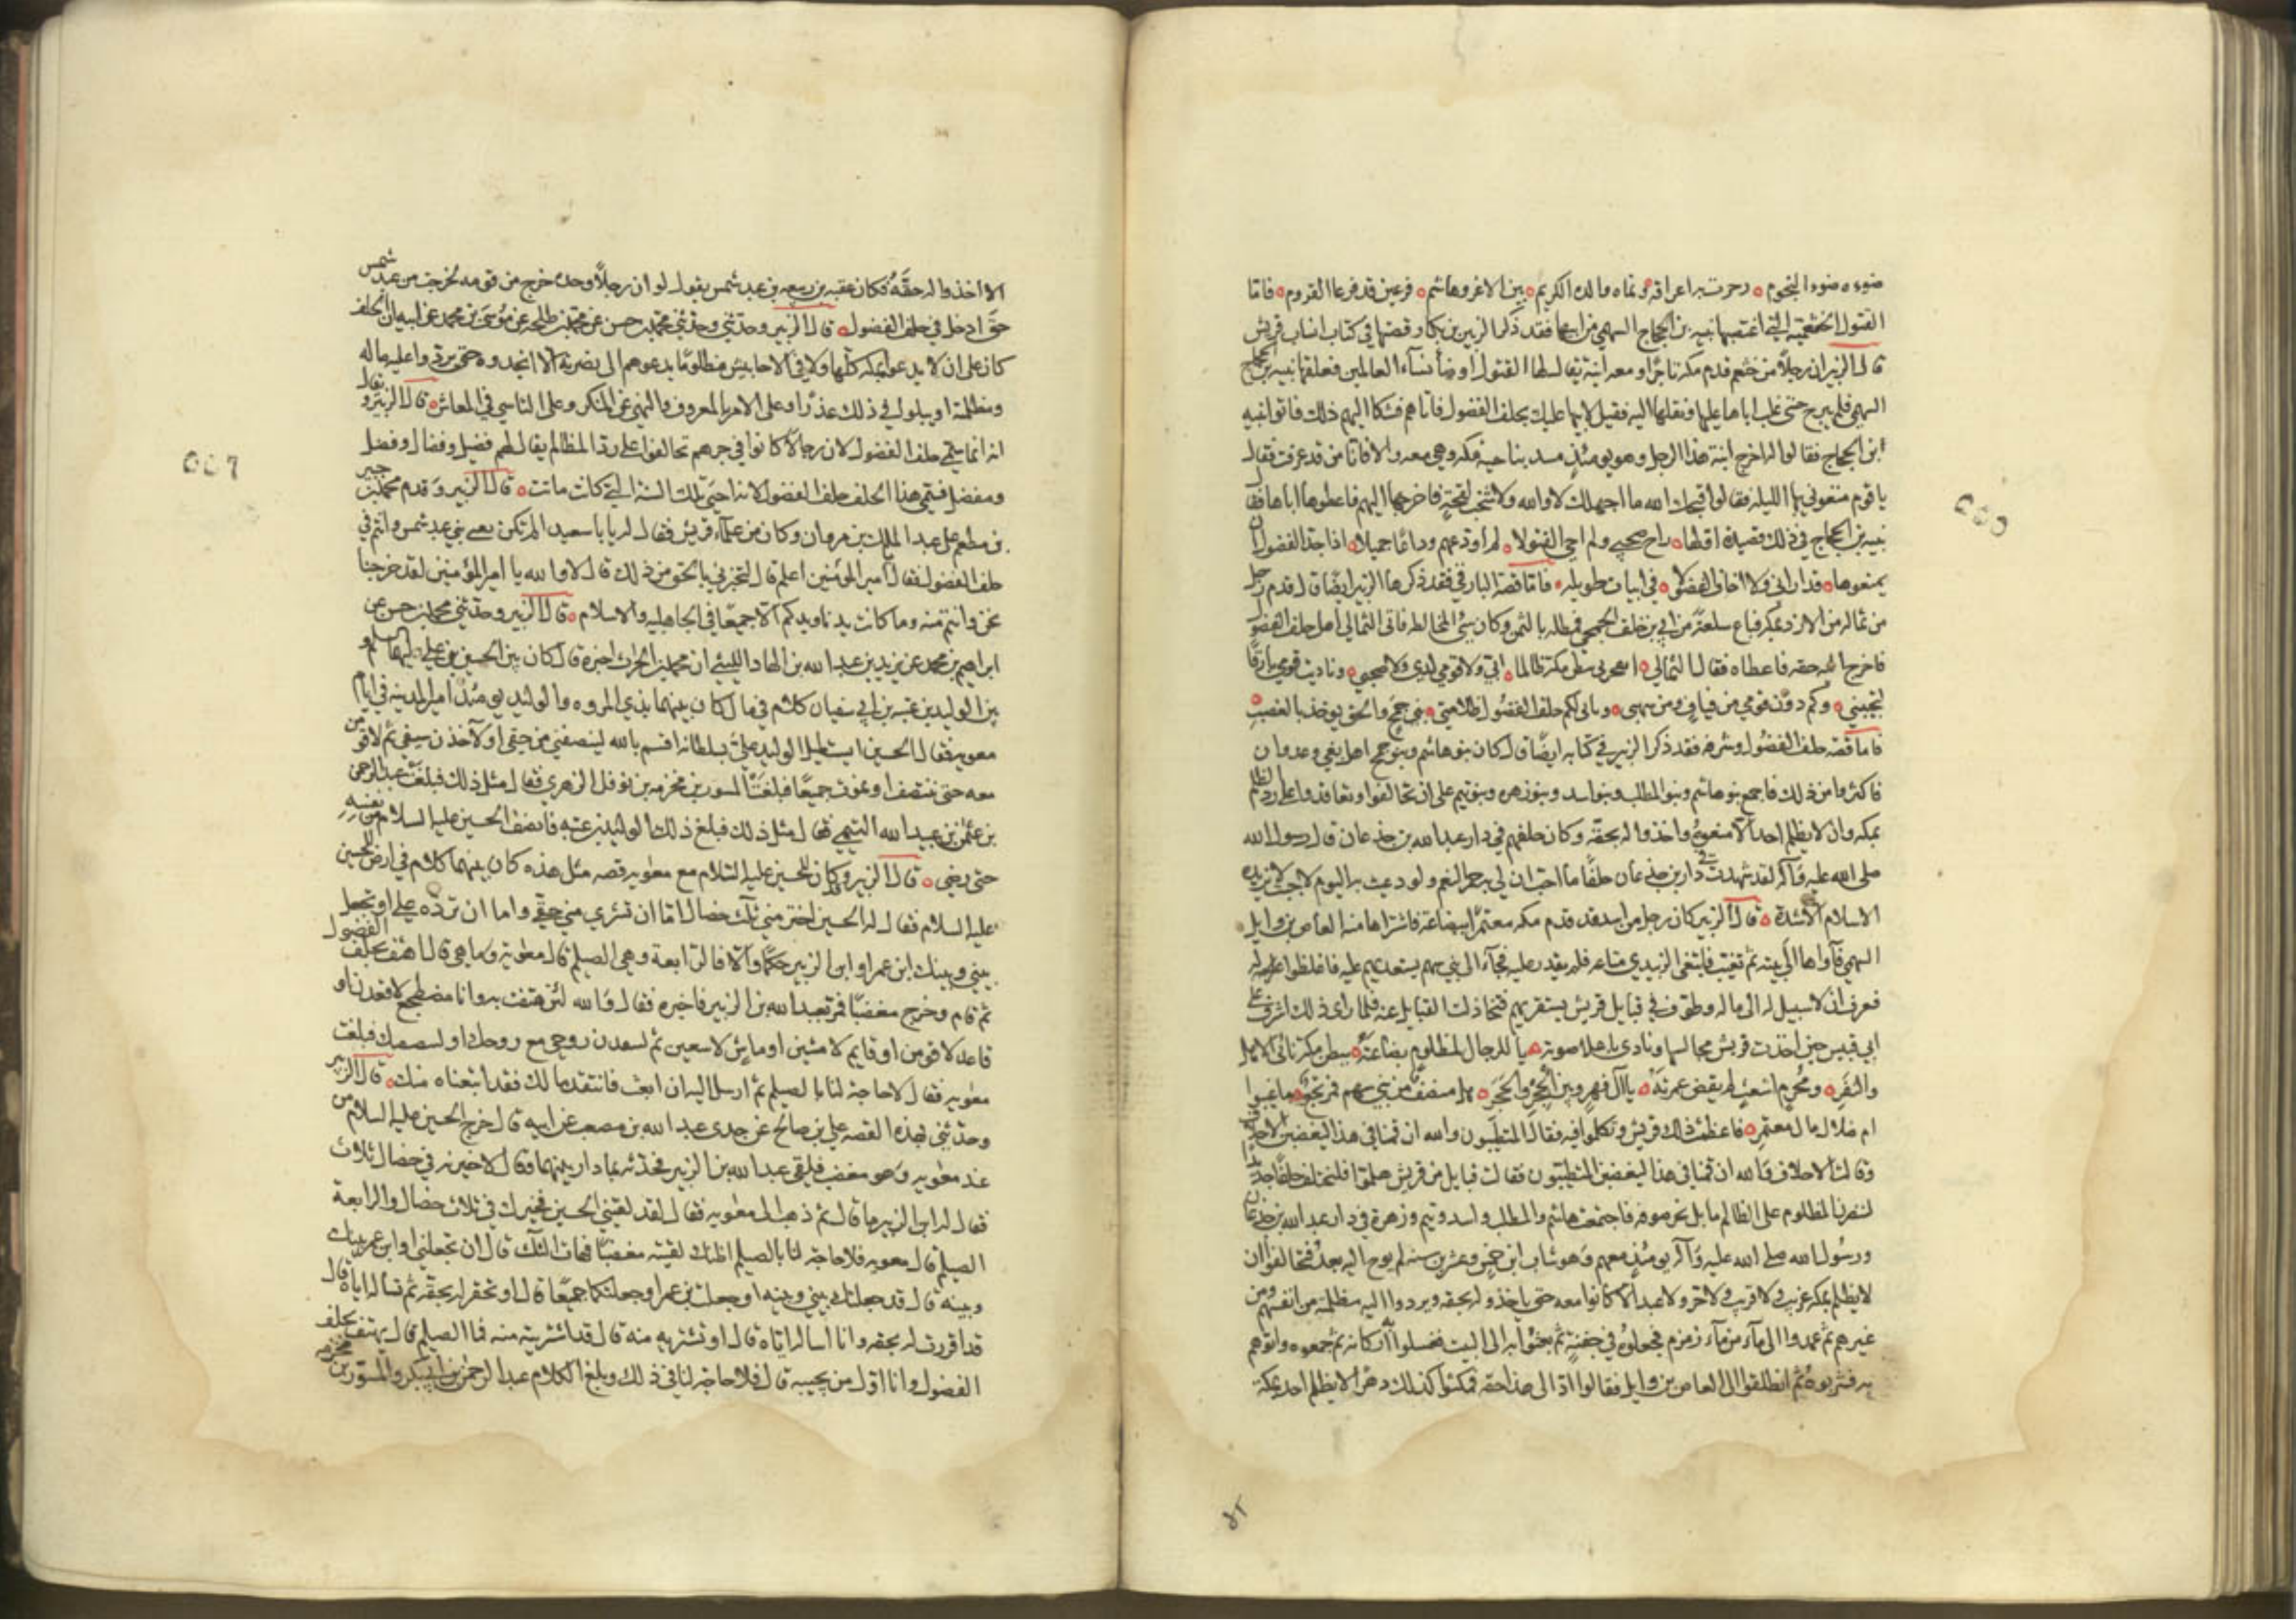 ضوءه ضوء النجوم ه وجرت به اعراقه ونماه والده الكريم ه بين الاغر وهاشم ه فرعين قد فرعا القروم ه فاما
القتول الخثعمية التي اغتصبها نبيه بن الحجاج السهمي من ابيها فقد ذكر الزبير بن بكار قصتها في كتاب انساب قريش
قال الزبير ان رجلا من خثعم قدم مكة تاجرا ومعه ابنة يقال لها القتول اوضأ نساء العالمين فعلقها نبيه بن الحجاج
السهمي فلم يبرح حتى غلب اباها عليها ونقلها اليه فقيل لابيها عليك بحلف الفضول فاتاهم فشكا اليهم ذلك فاتوا نبيه
ابن الحجاج فقالوا له اخرج ابنة هذا الرجل وهو يومئذ منتبد بناحية مكه وهي معه والا فانا من قد عرفت فقال
يا قوم متعوني بها الليلة فقالوا قبحك الله ما اجهلك لا والله ولا شخب لقحة فاخرجها اليهم فاعطوها اباها فقال
نبيه بن الحجاج في ذلك قصيدة اولها ه راح صحبي ولم احي القتولا ه لم اودعهم وداعا جميلا ه اذ اجد الفضول ان
يمنعوها ه قد اراني ولا اخاف الفضولا ه في ابيات طويله ه فاما قصة البارقي فقد ذكرها الزبير ايضا قال قدم رجل
من ثماله من الازد مكه فباع سلعة من ابي بن خلف الجمحي فمطله بالثمن وكان سيئ المخالطه فاتى الثمالي اهل حلف الفضول
فاخرج الله حقه فاعطاه فقال الثمالي ه ايفجر بي ببطن مكة ظالما ه ابي ولا قومي لدي ولا صحبي ه وناديت قومي بارقا
لتجيبني ه وكم دون قومي من فياف ومن سهب ه ويابى لكم حلف الفضول ظلامتي ه بني جمح والحق يوخذ بالغصب ه
فاما قصه حلف الفضول وشرفه فقد ذكر الزبير في كتابه ايضا قال كان بنو هاشم وبنو جمح اهل بغي وعدوان
فاكثروا من ذلك فاجمع بنو هاشم وبنو المطلب وبنو اسد وبنو زهره وبنو تيم على ان تحالفوا وتعاقدوا على رد الظلم
بمكه وان لا يظلم احد الا منعوه واخذوا له بحقه وكان حلفهم في دار عبد الله بن جذعان قال رسول الله
صلى الله عليه وآله لقد شهدت في دار بن جذعان حلفا ما احب ان لي به حمر النعم ولو دعيت به اليوم لاجبت لا يزيده
الاسلام الا شدة ه قال الزبير كان رجل من اسد قد قدم مكه معتمرا ببضاعة فاشتراها منه العاص بن وايل
السهمي فآواها الى بيته ثم تغيب فابتغى الزبيدي متاعه فلم يقدر عليه فجاء الى بني سهم يستعديهم عليه فاغلظوا عليه
فعرف ان لا سبيل له الى ماله وطوف في قبايل قريش يستنفر بهم فتخاذلت القبايل عنه فلما راى ذلك اشرف على
ابي قبيس حين اخذت قريش مجالسها ونادى باعلا صوته ه يا للرجال لمظلوم بضاعته ه ببطن مكة نائي الاهل
والنفر ه ومحرم اشعث لم يقض عمرته ه يا آل فهر وبين الحجر والحجر ه هل منصف من بني سهم فمرتجع ه ما غيبوا
ام ضلال مال معتمر ه فاعظمت ذلك قريش وتكلموا فيه فقال المطيبون والله ان قمنا في هذا ليغضبن الاحلاف
وقالت الاحلاف والله ان قمنا في هذا ليغضبن المطيبون فقالت قبايل من قريش هلموا فلنحتلف حلفا جديدا
لننصرن المظلوم على الظالم ما بل بحر صوفه فاجتمعت هاشم والمطلب واسد وتيم وزهرة في دار عبد الله بن جذعان
ورسول الله صلى الله عليه وآله يومئذ معهم وهو شاب ابن خمس وعشرين سنه لم يوح اليه بعد فتحالفوا ان
لا يظلم بمكه غريب ولا قريب ولا حر ولا عبد الا كانوا معه حتى ياخذوا له بحقه ويردوا اليه مظلمته من انفسهم ومن
غيرهم ثم عمدوا الى ماء من ماء زمزم فجعلوه في جفنة ثم بعثوا به الى البيت فغسلوا اركانه ثم جمعوه واتوهم
به فشربوه ثم انطلقوا الى العاص بن وايل فقالوا اد الى هذا حقه فمكثوا كذلك دهرا لا يظلم احد بمكة
الا اخذوا له حقه فكان عتبه بن ربيعه بن عبد شمس يقول لو ان رجلا وحده خرج من قومه لخرجت من عبد شمس
حتى ادخل في حلف الفضول ه قال الزبير وحدثني وحدثني محمد بن حسن عن محمد بن طلحه عن موسى بن محمد عن ابيه ان الحلف
كان على ان لا يدعوا بمكه كلها ولا في الاحابيش مظلوما يدعوهم الى نصرته الا انجدوه حتى يردوا عليه ماله
ومظلمته او يبلوا في ذلك عذرا وعلى الامر بالمعروف والنهي عن المنكر وعلى التاسي في المعاش ه قال الزبير ويقال
انه انما سمي حلف الفضول لان رجالا كانوا في جرهم تحالفوا على رد المظالم يقال لهم فضيل وفضال وفضل
ومفضل فسمي هذا الحلف حلف الفضول لانه احيى تلك السنة التي كانت ماتت ه قال الزبير وقدم محمد بن جبير
بن مطعم على عبد الملك بن مروان وكان من علماء قريش فقال له يا با سعيد الم نكن يعني بني عبد شمس وانتم في
حلف الفضول فقال امير المؤمنين اعلم قال لتخبرني بالحق من ذلك قال لا والله يا امير المؤمنين لقد خرجنا
نحن وانتم منه وما كانت يدنا ويدكم الا جميعا في الجاهليه والاسلام ه قال الزبير وحدثني محمد بن حسن عن
ابراهيم بن محمد عن يزيد بن عبد الله بن الهاد الليثي ان محمد بن الحرث اخبره قال كان بين الحسين بن علي عليهما السلم و
بين الوليد بن عتبه بن ابي سفيان كلام في مال كان بينهما بذي المروه والوليد يومئذ امير المدينه في ايام
معويه فقال الحسين ايستطيل الوليد علي بسلطانه اقسم بالله لينصفني من حقي او لآخذن سيفي ثم لاقومن
معه حتى ننتصف او نموت جميعا فبلغت المسور بن مخرمه بن نوفل الزهري فقال مثل ذلك فبلغت عبد الرحمن
بن عثمن بن عبيد الله التيمي فقال مثل ذلك فبلغ ذلك الوليد بن عتبه فانصف الحسين عليه السلام من نفسه
حتى رضي ه قال الزبير وكان للحسين عليه السلام مع معويه قصه مثل هذه كان بينهما كلام في ارض للحسين
عليه السلام فقال له الحسين اختر مني ثلث خصال اما ان تشتري مني حقي واما ان ترده علي او تجعل
بيني وبينك ابن عمر او ابن الزبير حكما والا فالرابعة وهي الصيلم قال معويه وما هي قال اهتف بحلف الفضول
ثم قام وخرج مغضبا فمر بعبد الله بن الزبير فاخبره فقال والله لئن هتفت به وانا مضطجع لاقعدن او
قاعد لاقومن او قايم لامشين او ماش لاسعين ثم لتنفدن روحي مع روحك او لينصفنك فبلغت
معويه فقال لا حاجة لنا بالصيلم ثم ارسل اليه ان ابعث فانتقد مالك فقد ابتعناه منك ه قال الزبير
وحدثني بهذه القصه علي بن صالح عن جدي عبد الله بن مصعب عن ابيه قال خرج الحسين عليه السلام من
عند معويه وهو مغضب فلقي عبد الله بن الزبير فحدثه بما دار بينهما وقال لاخيرنه في خصال ثلاث
فقال له ابن الزبير ما قال ثم ذهب الى معويه فقال لقد لقيني الحسين فخيرك في ثلاث خصال والرابعة
الصيلم قال معويه فلا حاجة لنا بالصيلم اظنك لقيته مغضبا فهات الثلث قال ان تجعلني او ابن عمر بينك
وبينه قال قد جعلتك بيني وبينه او جعلت بن عمر او جعلتكما جميعا قال او تقر له بحقه ثم تساله اياه قال
قد اقررت له بحقه وانا اساله اياه قال او تشتريه منه قال قد اشتريته منه فما الصيلم قال يهتف بحلف
الفضول وانا اول من يجيبه قال فلا حاجة لنا في ذلك وبلغ الكلام عبد الرحمن بن ابي بكر والمسور بن مخرمه